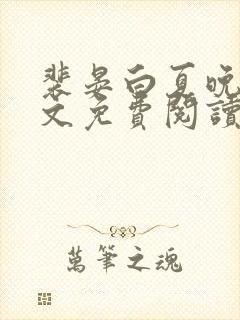 裴晏白夏晚
文免費閱讀
萬筆之魂